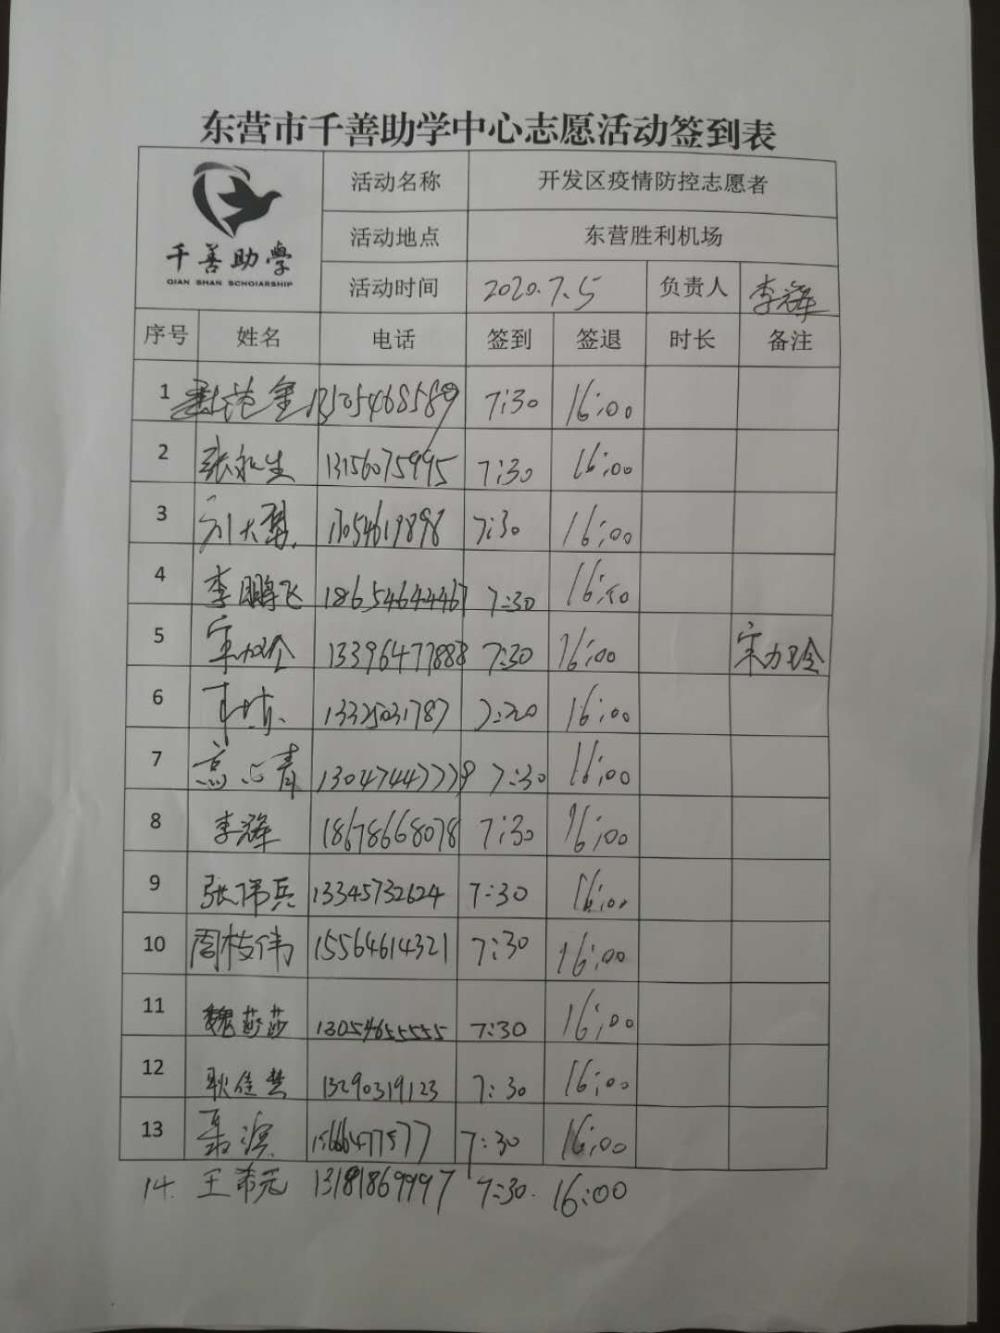 东营市千善助学中心志愿活动签到表
千善助學
QIAN SHAN SCHOIARSHIP
活动名称 开发区疫情防控志愿者
活动地点 东营胜利机场
活动时间 2020.7.5 负责人 李辉
序号 姓名 电话 签到 签退 时长 备注
1 13105468589 7:30 16:00
2 张永生 13156075995 7:30 16:00
3 刘大勇 13054619898 7:30 16:00
4 李鹏飞 18654644467 7:30 16:00
5 宋力玲 13396477888 7:30 16:00 宋力玲
6 13325031787 7:30 16:00
7 高心青 13047447779 7:30 16:00
8 李辉 18678668078 7:30 16:00
9 张伟兵 13345732624 7:30 16:00
10 周枝伟 15564614321 7:30 16:00
11 魏莎莎 13054655555 7:30 16:00
12 耿佳慧 13290319123 7:30 16:00
13 聂滨 15666477577 7:30 16:00
14. 王希元 13181869997 7:30. 16:00